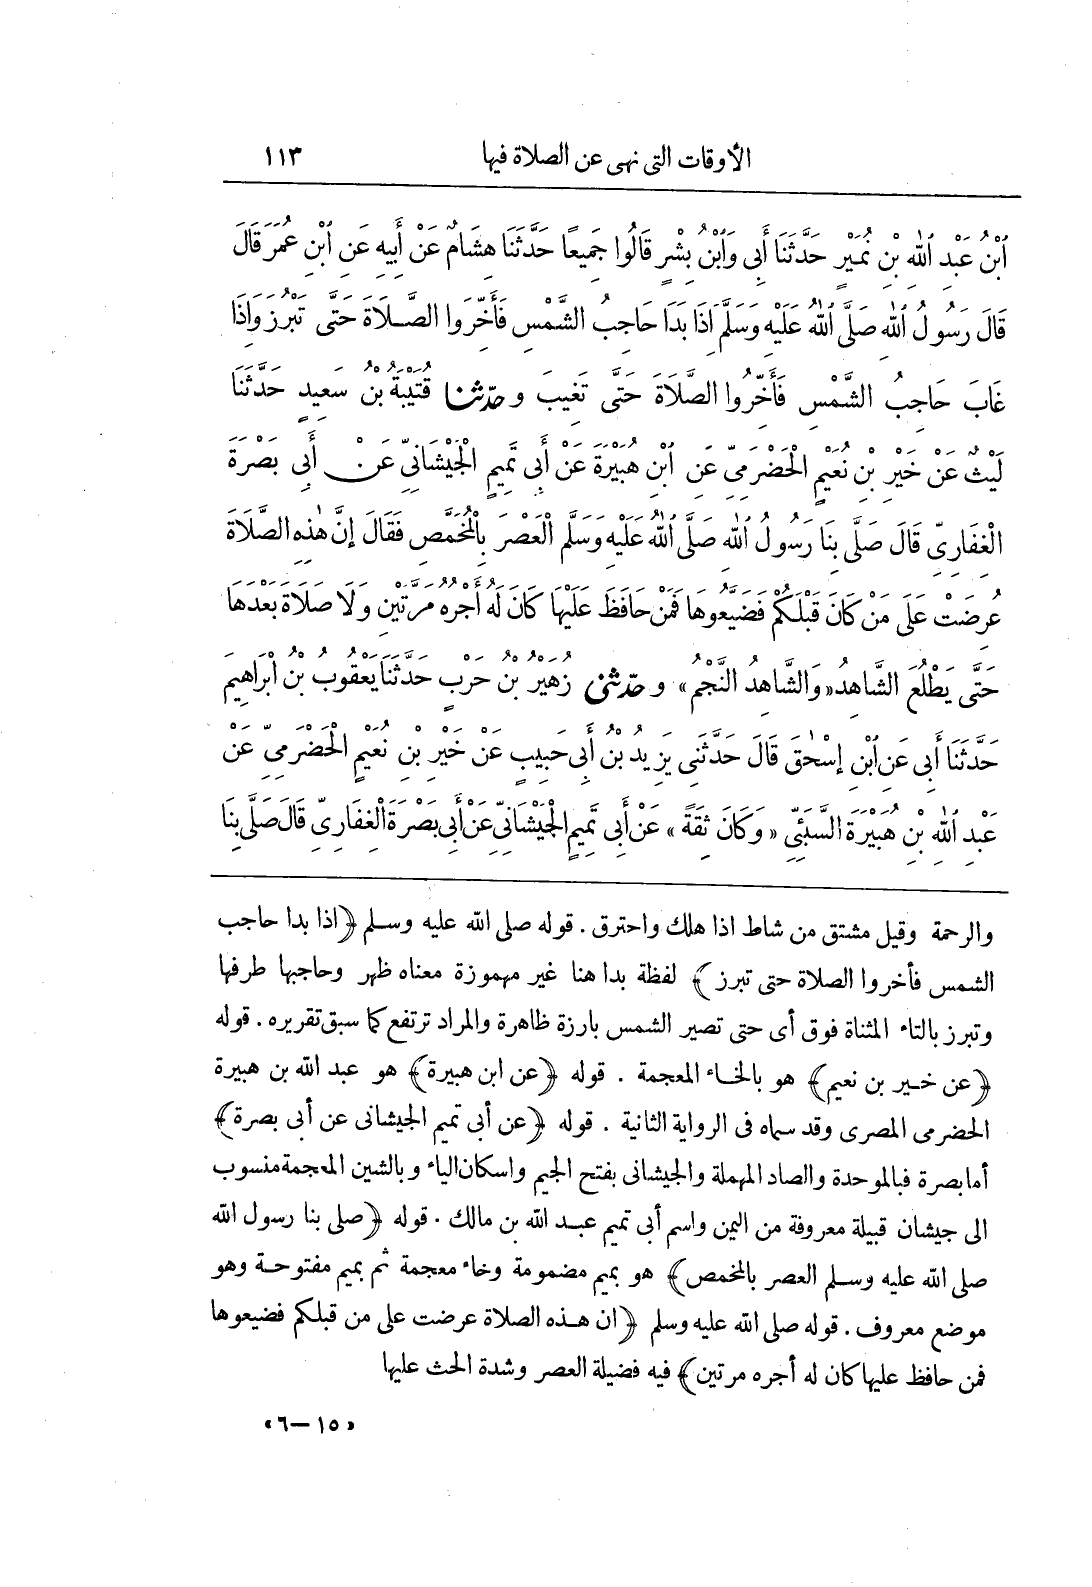 الأوقات التى نهى عن الصلاة فيها ١١٣
ٱبْنُ عَبْدِ ٱللّٰهِ بْنِ نُمَيْرٍ حَدَّثَنَا أَبِى وَٱبْنُ بِشْرٍ قَالُوا جَمِيعًا حَدَّثَنَا هِشَامٌ عَنْ أَبِيهِ عَنِ ٱبْنِ عُمَرَ قَالَ
قَالَ رَسُولُ ٱللّٰهِ صَلَّى ٱللّٰهُ عَلَيْهِ وَسَلَّمَ إِذَا بَدَا حَاجِبُ الشَّمْسِ فَأَخِّرُوا الصَّلَاةَ حَتَّى تَبْرُزَ وَإِذَا
غَابَ حَاجِبُ الشَّمْسِ فَأَخِّرُوا الصَّلَاةَ حَتَّى تَغِيبَ و حدثنا قُتَيْبَةُ بْنُ سَعِيدٍ حَدَّثَنَا
لَيْثٌ عَنْ خَيْرِ بْنِ نُعَيْمٍ الْحَضْرَمِىِّ عَنِ ٱبْنِ هُبَيْرَةَ عَنْ أَبِى تَمِيمٍ الْجَيْشَانِىِّ عَنْ أَبِى بَصْرَةَ
الْغِفَارِىِّ قَالَ صَلَّى بِنَا رَسُولُ ٱللّٰهِ صَلَّى ٱللّٰهُ عَلَيْهِ وَسَلَّمَ الْعَصْرَ بِالْمُخَمَّصِ فَقَالَ إِنَّ هٰذِهِ الصَّلَاةَ
عُرِضَتْ عَلَى مَنْ كَانَ قَبْلَكُمْ فَضَيَّعُوهَا فَمَنْ حَافَظَ عَلَيْهَا كَانَ لَهُ أَجْرُهُ مَرَّتَيْنِ وَلَا صَلَاةَ بَعْدَهَا
حَتَّى يَطْلُعَ الشَّاهِدُ «وَالشَّاهِدُ النَّجْمُ» و حدثنى زُهَيْرُ بْنُ حَرْبٍ حَدَّثَنَا يَعْقُوبُ بْنُ إِبْرَاهِيمَ
حَدَّثَنَا أَبِى عَنِ ٱبْنِ إِسْحٰقَ قَالَ حَدَّثَنِى يَزِيدُ بْنُ أَبِى حَبِيبٍ عَنْ خَيْرِ بْنِ نُعَيْمٍ الْحَضْرَمِىِّ عَنْ
عَبْدِ ٱللّٰهِ بْنِ هُبَيْرَةَ السَّبَئِىِّ « وَكَانَ ثِقَةً » عَنْ أَبِى تَمِيمٍ الْجَيْشَانِىِّ عَنْ أَبِى بَصْرَةَ الْغِفَارِىِّ قَالَ صَلَّى بِنَا
والرحمة وقيل مشتق من شاط اذا هلك واحترق . قوله صلى الله عليه وسلم ﴿ اذا بدا حاجب
الشمس فأخروا الصلاة حتى تبرز ﴾ لفظة بدا هنا غير مهموزة معناه ظهر وحاجبها طرفها
وتبرز بالتاء المثناة فوق أى حتى تصير الشمس بارزة ظاهرة والمراد ترتفع كما سبق تقريره . قوله
﴿ عن خير بن نعيم ﴾ هو بالخاء المعجمة . قوله ﴿ عن ابن هبيرة ﴾ هو عبد الله بن هبيرة
الحضرمى المصرى وقد سماه فى الرواية الثانية . قوله ﴿ عن أبى تميم الجيشانى عن أبى بصرة ﴾
أما بصرة فبالموحدة والصاد المهملة والجيشانى بفتح الجيم واسكان الياء وبالشين المعجمة منسوب
الى جيشان قبيلة معروفة من اليمن واسم أبى تميم عبد الله بن مالك . قوله ﴿ صلى بنا رسول الله
صلى الله عليه وسلم العصر بالمخمص ﴾ هو بميم مضمومة وخاء معجمة ثم بميم مفتوحة وهو
موضع معروف . قوله صلى الله عليه وسلم ﴿ ان هذه الصلاة عرضت على من قبلكم فضيعوها
فمن حافظ عليها كان له أجره مرتين ﴾ فيه فضيلة العصر وشدة الحث عليها
«١٥—٦»